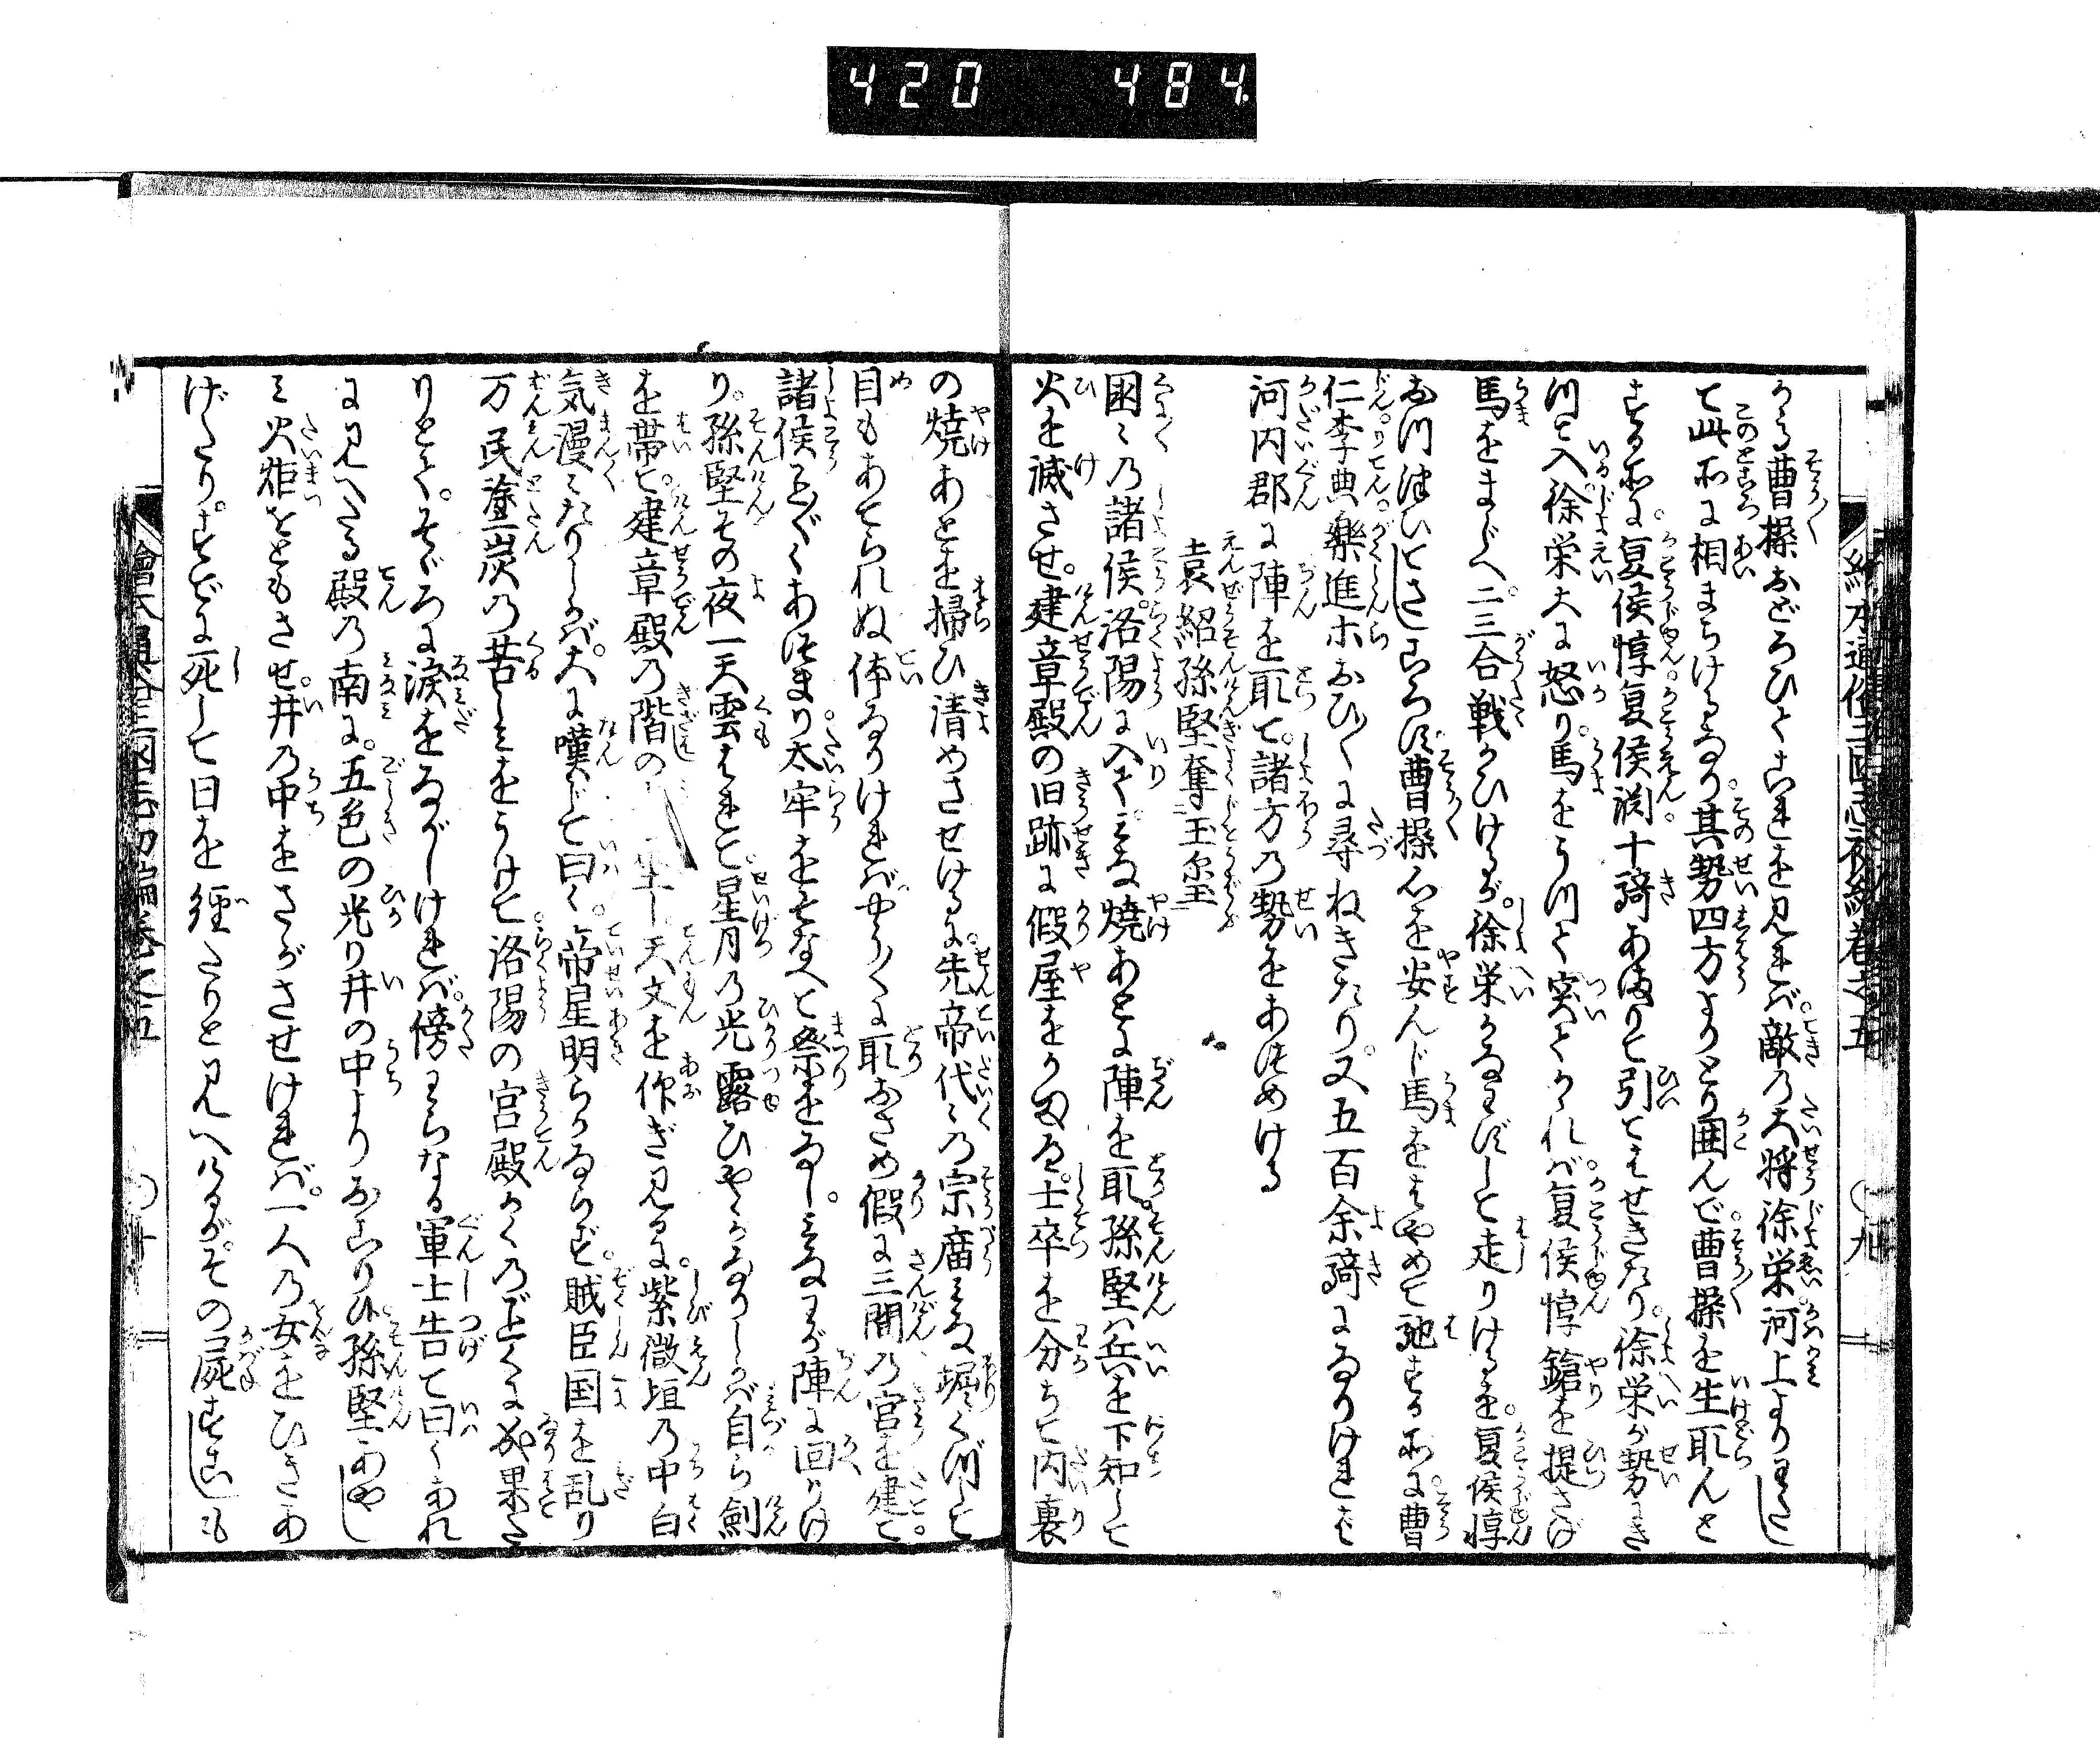 420 484
かる曹操おどろひてこれを見れば。敵乃大将徐栄河上よりわたし
て此所に相まちけるなり。其勢四方よりとり囲んで曹操を生取んと
する所に。夏侯惇夏侯淵十騎あまりにて引とはせきたり。徐栄が勢にき
つて入。徐栄大に怒り。馬をうつて突てかゝれば。夏侯惇鎗を提さげ
馬をまじへ。二三合戦かひけるが。徐栄かなはずして走りけるを。夏侯惇
おつ津ひてさしころす。曹操心を安んじ馬をはやめて馳する所に。曹
仁李典樂進ホおひ〳〵に尋ねきたり。又五百余騎になりけれは
河内郡に陣を取て。諸方乃勢をあつめける
袁紹孫堅奪玉璽
國〻乃諸侯。洛陽に入て。みな焼あとに陣を取。孫堅ハ兵を下知して
火を滅させ。建章殿の旧跡に假屋をかまへ。士卒を分ちて内裏
の焼あとを掃ひ清めさせけるに。先帝代〻乃宗廟みな堀くづして
目もあてられぬ体なりければ。やう〳〵に取おさめ假に三間乃宮を建て。
諸侯こと〴〵くあつまり。太牢をそなへて祭をなし。みなわが陣に回りけ
り。孫堅その夜一天雲はれて。星月乃光露ひやゝかなりしかば自ら劍
を帯て。建章殿乃階の
坐し天文を作ぎ見るに。紫微垣乃中白
気漫〻たりしかば。大に嘆じて曰く。帝星明らかならず。賊臣国を乱り
万民塗炭乃苦しミをうけて。洛陽の宮殿かく乃ごとくに成果た
りとて。そゞろに涙をながしけれバ。傍わらなる軍士告て曰くあれ
に見へたる殿乃南に。五色の光り井の中よりおこりひ。孫堅あやし
ミ火炬をともさせ。井乃中をさがさせければ。一人乃女をひきあ
げたり。すでに死して日を経たりと見へけるが。その屍すこしも